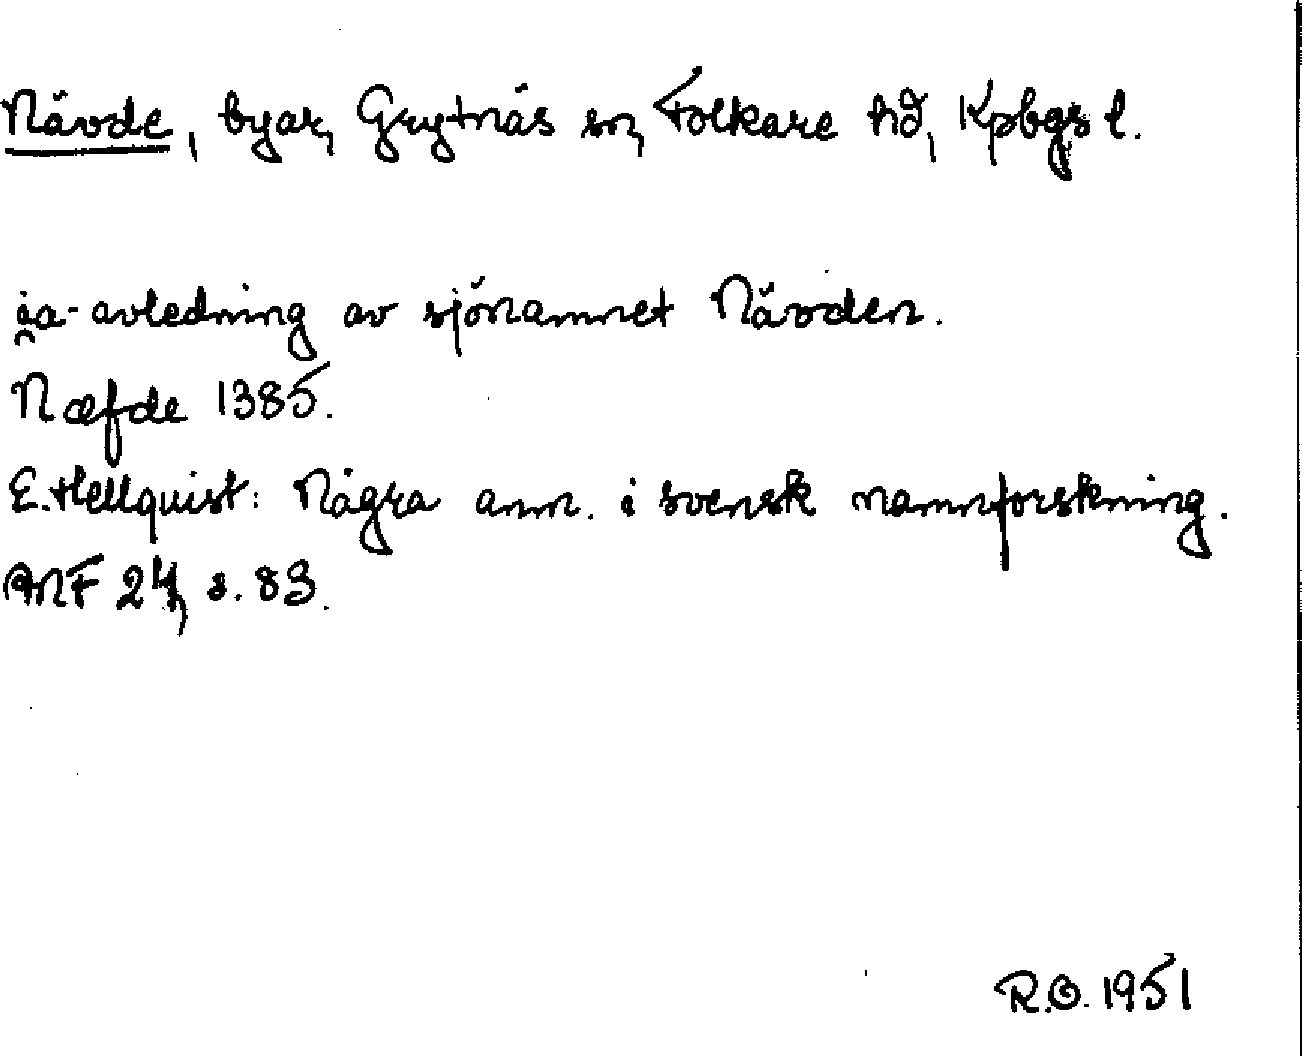 Nävde, byar, Grytnäs sn, Folkare hd, Kpbgs l.
i̯a-avledning av sjönamnet Nävden.
Næfde 1385.
E. Hellquist: Några anm. i svensk namnforskning.
ANF 24, s. 83.
R.O. 1951